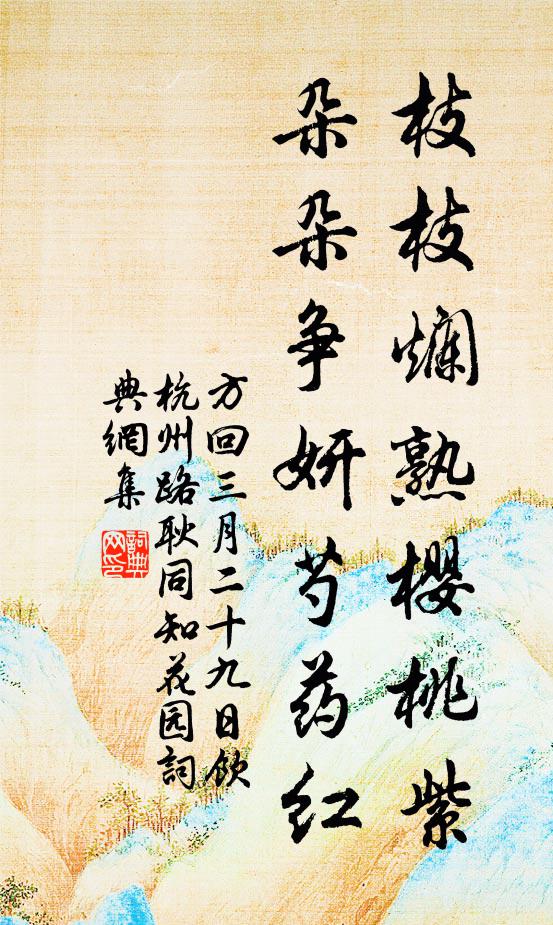 枝枝爛熟櫻桃紫
朵朵争妍芍药红
方回三月二十九日飲
杭州路耿同知花园詞
典網集
詞典
网印